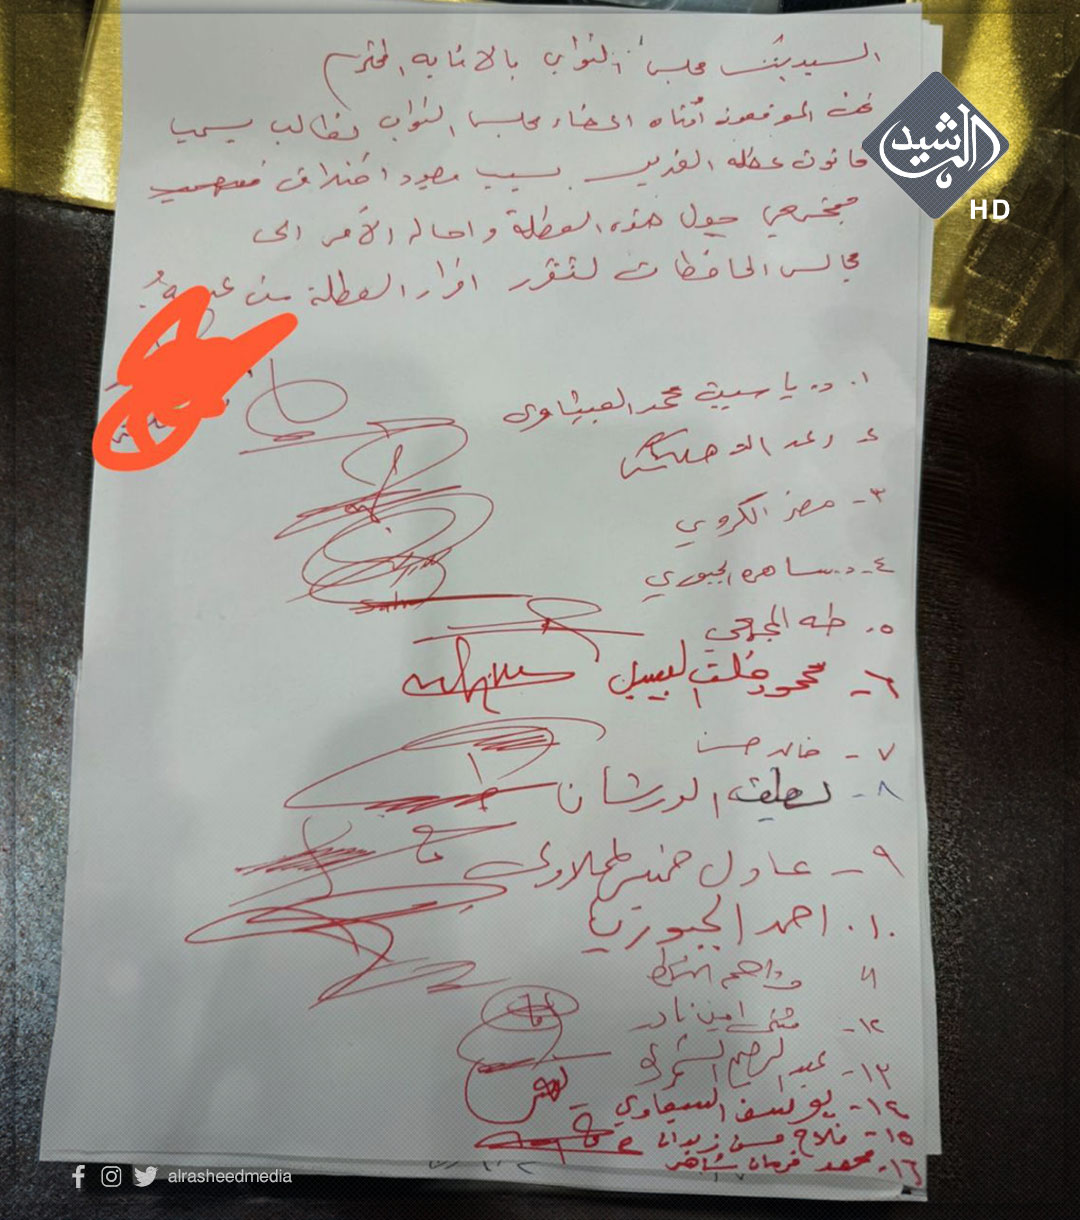 السيد رئيس مجلس النواب بالانابه المحترم
نحن الموقعون أدناه اعضاء مجلس النواب نطالب بسحب
قانون عطلة الغدير بسبب وجود اختلاف
مجتمعي حول هذه العطلة واحالة الأمر الى
مجالس المحافظات لتقرر اقرار العطلة من عدمه
الرشيد
HD
١. د. ياسين محمد العيثاوي
٢ رعد الدهلكي
٣- مضر الكروي
٤- د. ساهره الجبوري
٥. طه المجمعي
٦- محمود القيسي
٧- خالد حسن
٨- لطيف الورشان
٩- عادل خميس المحلاوي
١٠. احمد الجبوري
١١
١٢- مثنى امين نادر
١٣- عبد الرحيم الشمري
١٤- يوسف السبعاوي
١٥- فلاح حسن زيدان
١٦- محمد فرمان شاهر
alrasheedmedia